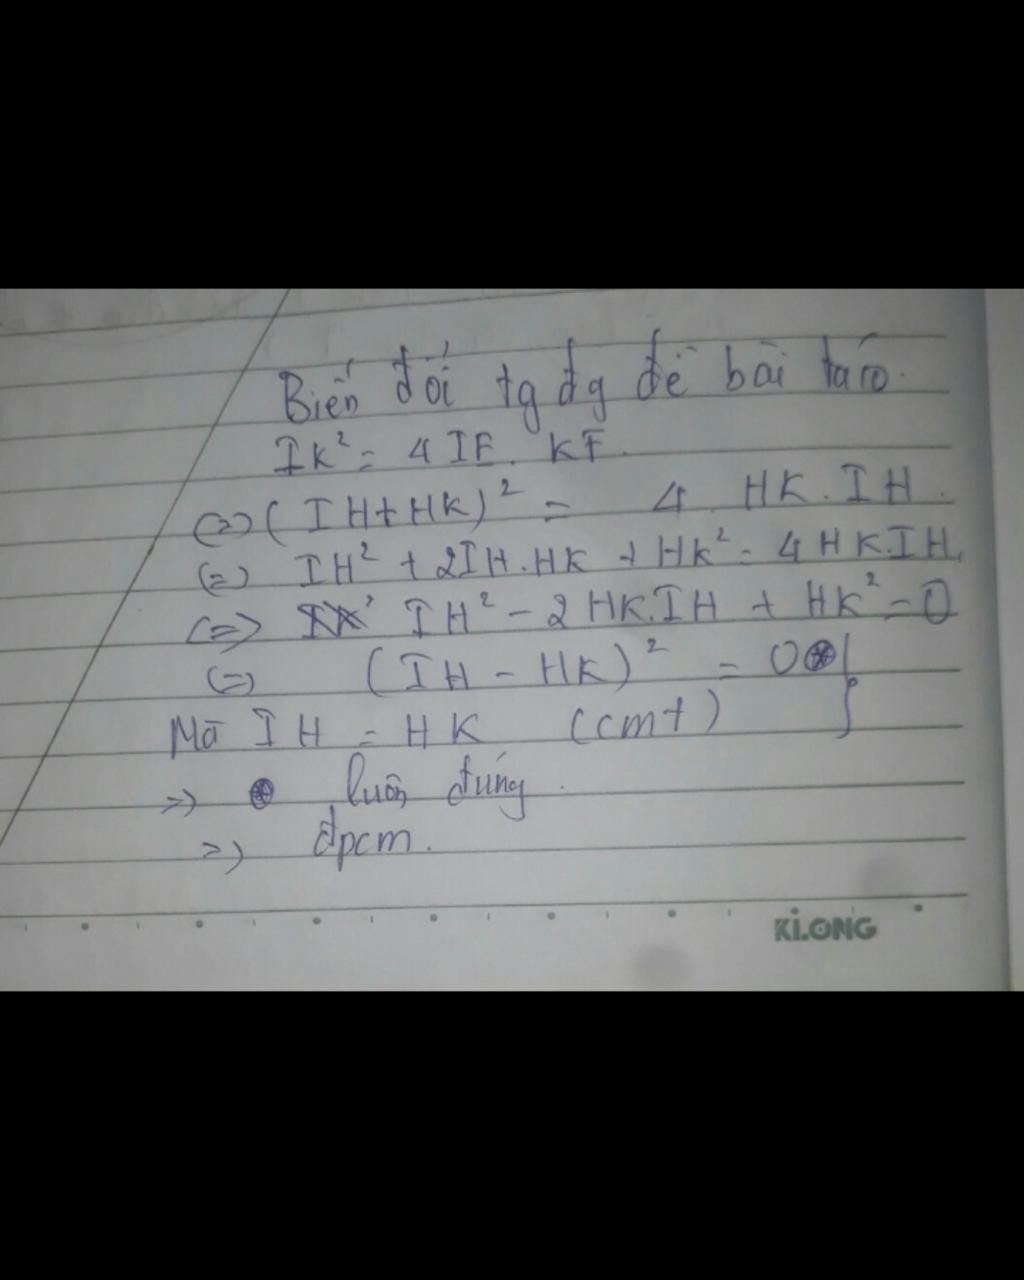 Biến đổi tg đg đề bài ta có.
IK² = 4 IE. KF.
(=) (IH+HK)² = 4 HK.IH.
(=) IH² + 2IH.HK + HK² = 4HK.IH.
(=) IH² - 2HK.IH + HK² = 0
(=) (IH - HK)² = 0 ⊛
Mà IH = HK (cmt)
=) ⊛ luôn đúng.
=) đpcm.
KLONG